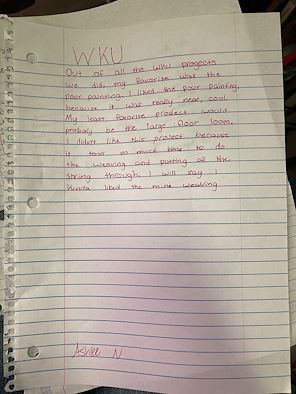 WKU
Out of all the wku progects
we did, my favorite was the
pour painting. I liked the pour painting,
because it was really near, cool.
My least favorite prodect would
probaly be the large floor loom.
I didn't like this protect because
it took so much time to do
the weaving and putting all the
string through. I will say i
kinda liked the mine weaving
Ashlee N